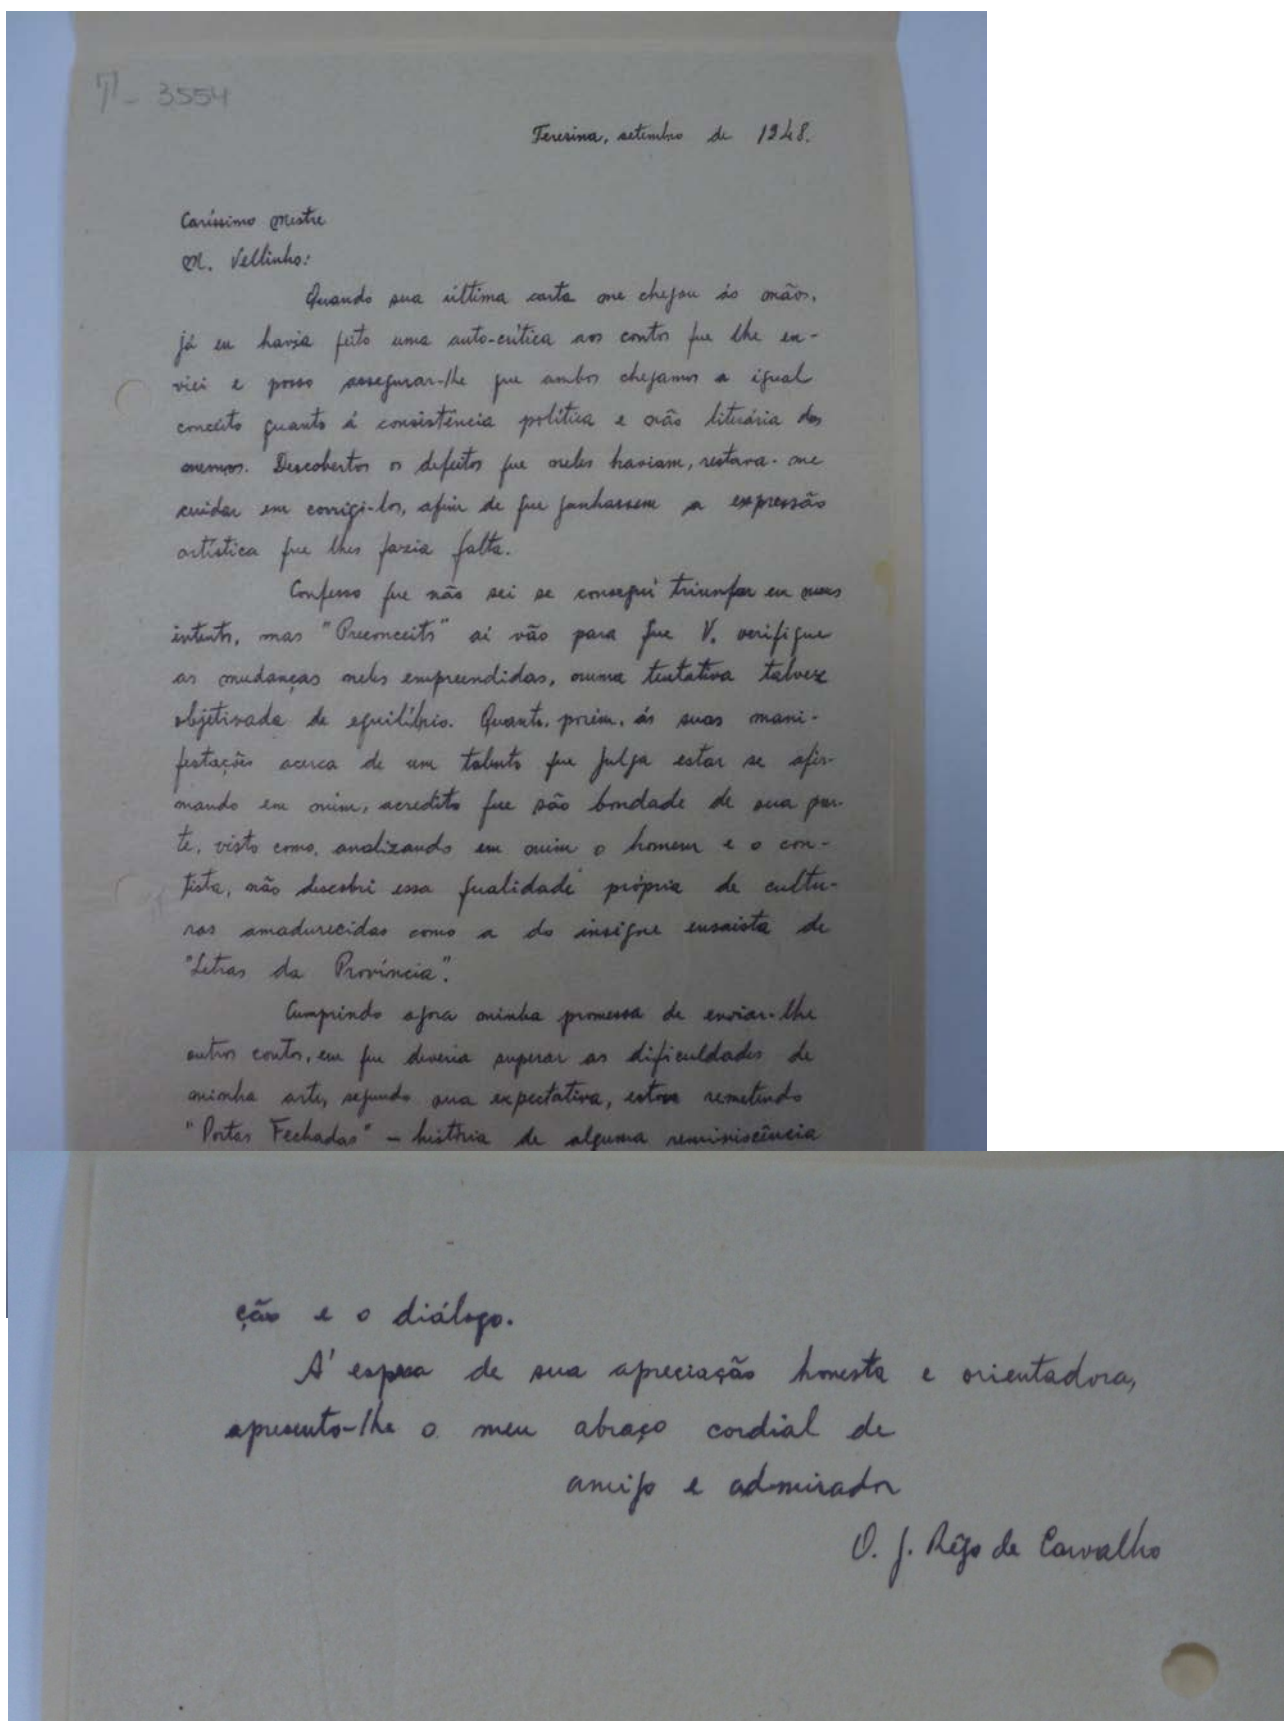 - 3554
Teresina, setembro de 1948.
Caríssimo Mestre
M. Vellinho:
Quando sua última carta me chegou às mãos,
já eu havia feito uma auto-crítica aos contos que lhe en-
viei e posso assegurar-lhe que ambos chegamos a igual
conceito quanto á consistência política e não literária dos
mesmos. Descobertos os defeitos que neles haviam, restava-me
cuidar em corrigi-los, afim de que ganhassem a expressão
artística que lhes fazia falta.
Confesso que não sei se conseguí triunfar em meus
intentos, mas "Preconceitos" aí vão para que V. verifique
as mudanças neles empreendidas, numa tentativa talvez
objetivada de equilíbrio. Quanto, porém, ás suas mani-
festações acerca de um talento que julga estar se afir-
mando em mim, acredito que são bondade de sua par-
te, visto como, analizando em mim o homem e o con-
tista, não descobri essa qualidade própria de cultu-
ras amadurecidas como a do insigne ensaista de
"Letras da Província".
Cumprindo agora minha promessa de enviar-lhe
outros contos, em que deveria superar as dificuldades de
minha arte, segundo sua expectativa, estou remetendo
"Portas Fechadas" – história de alguma reminiscência
ção e o diálogo.
A' espera de sua apreciação honesta e orientadora,
apresento-lhe o meu abraço cordial de
amigo e admirador
O. J. Rêgo de Carvalho